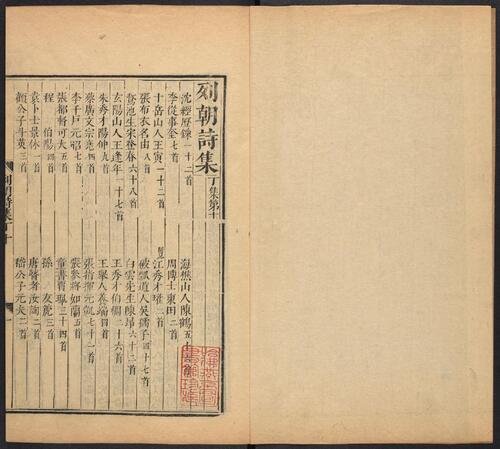 列朝詩集丁集第十
沈經歷鍊一十二首
海樵山人陳鶴五十
李從事奎七首
周博士東田二首
十岳山人王寅一十二首
附見江秀才瓘二首
張布衣名由八首
破瓢道人吳孺子四十七首
鵞池生宋登春六十八首
白雲先生陳昂六十二首
玄陽山人王逢年一十七首
王秀才伯稠二十六首
朱秀才陽仲九首
王舉人養端四首
蔡廣文宗堯四首
張指揮元凱七十二首
李千戶元昭七首
張參將如蘭五首
張都幹可大五首
童書賈珮三十四首
程伯陽四首
孫友箎三首
袁卜士景休一首
唐瞽者汝詢二首
顧公子斗英三首
潘公子元夫二首
列朝詩集丁十
一